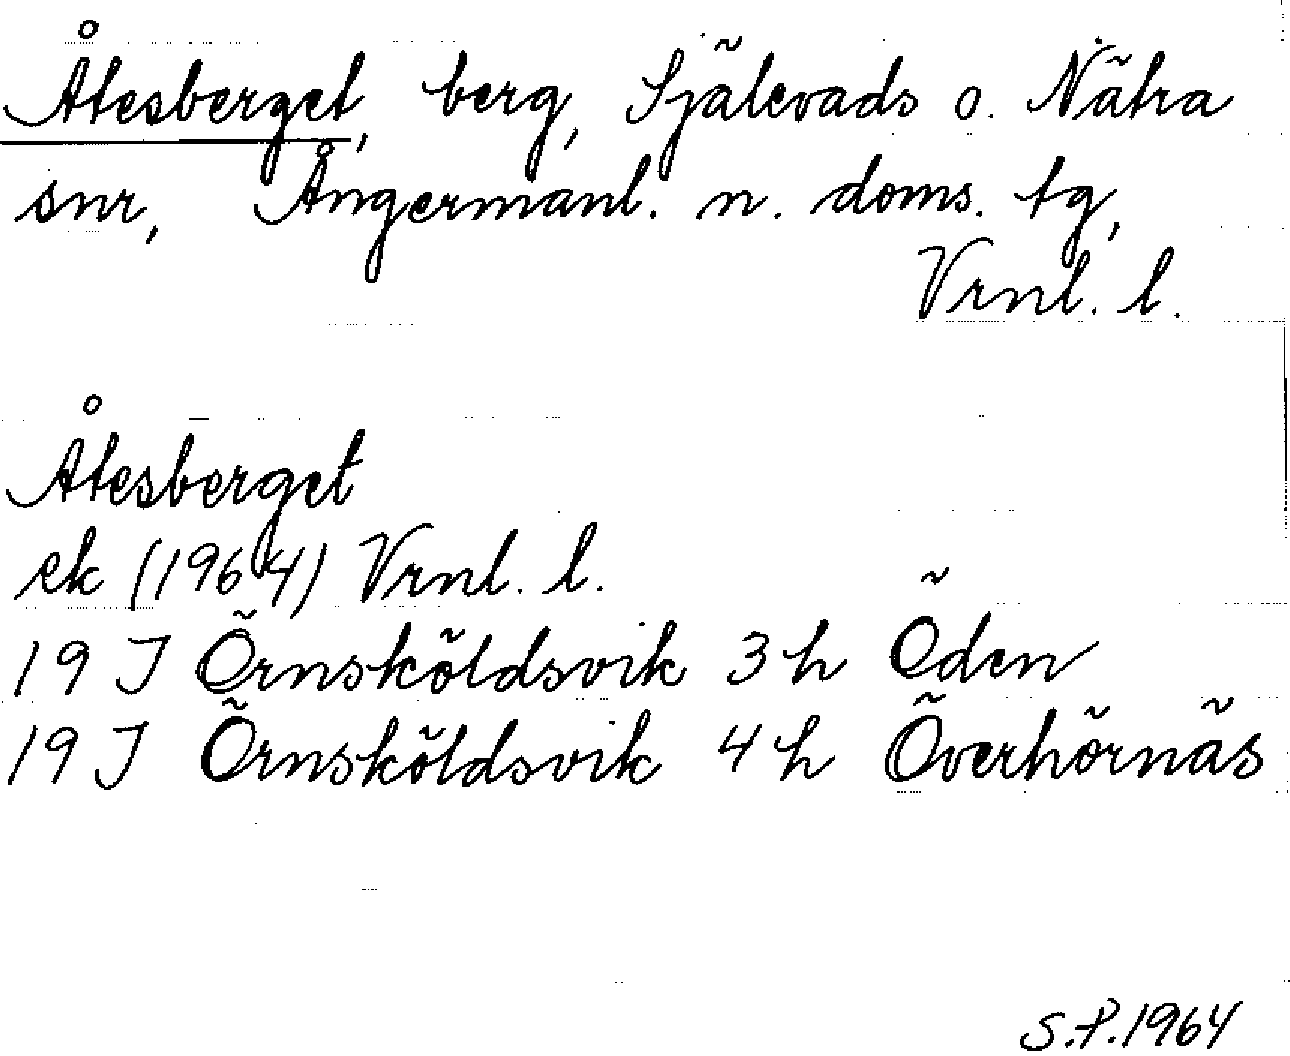 Åtesberget, berg, Själevads o. Nätra
snr, Ångermanl. n. doms. tg,
Vrnl. l.
Åtesberget
ek (1964) Vrnl. l.
19 J Örnsköldsvik 3 h Öden
19 J Örnsköldsvik 4 h Överhörnäs
S.P. 1964